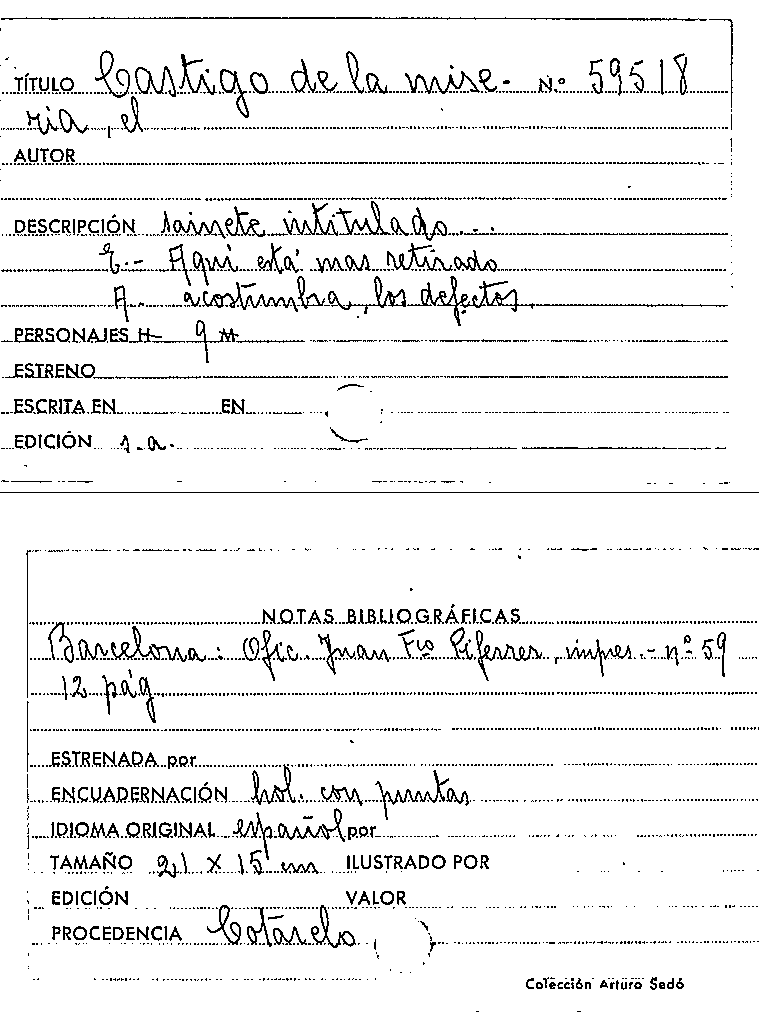 TÍTULO Castigo de la mise- N.º 59518
ria, el
AUTOR
DESCRIPCIÓN sainete intitulado...
E.- Aquí está mas retirado
A.. acostumbra, los defectos.
PERSONAJES H- 9 M-
ESTRENO
ESCRITA EN EN
EDICIÓN s.a.
NOTAS BIBLIOGRÁFICAS
Barcelona: Ofic. Juan Fco Piferrer, impres.- nº 59
12 pág
ESTRENADA por
ENCUADERNACIÓN hol. con puntas
IDIOMA ORIGINAL español por
TAMAÑO 21 X 15 cm ILUSTRADO POR
EDICIÓN VALOR
PROCEDENCIA Cotarelo
Colección Arturo Sedó